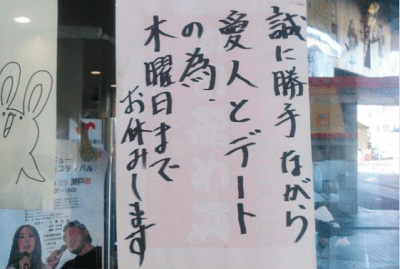 誠に勝手ながら
愛人とデート
の為、
木曜日まで
お休みします